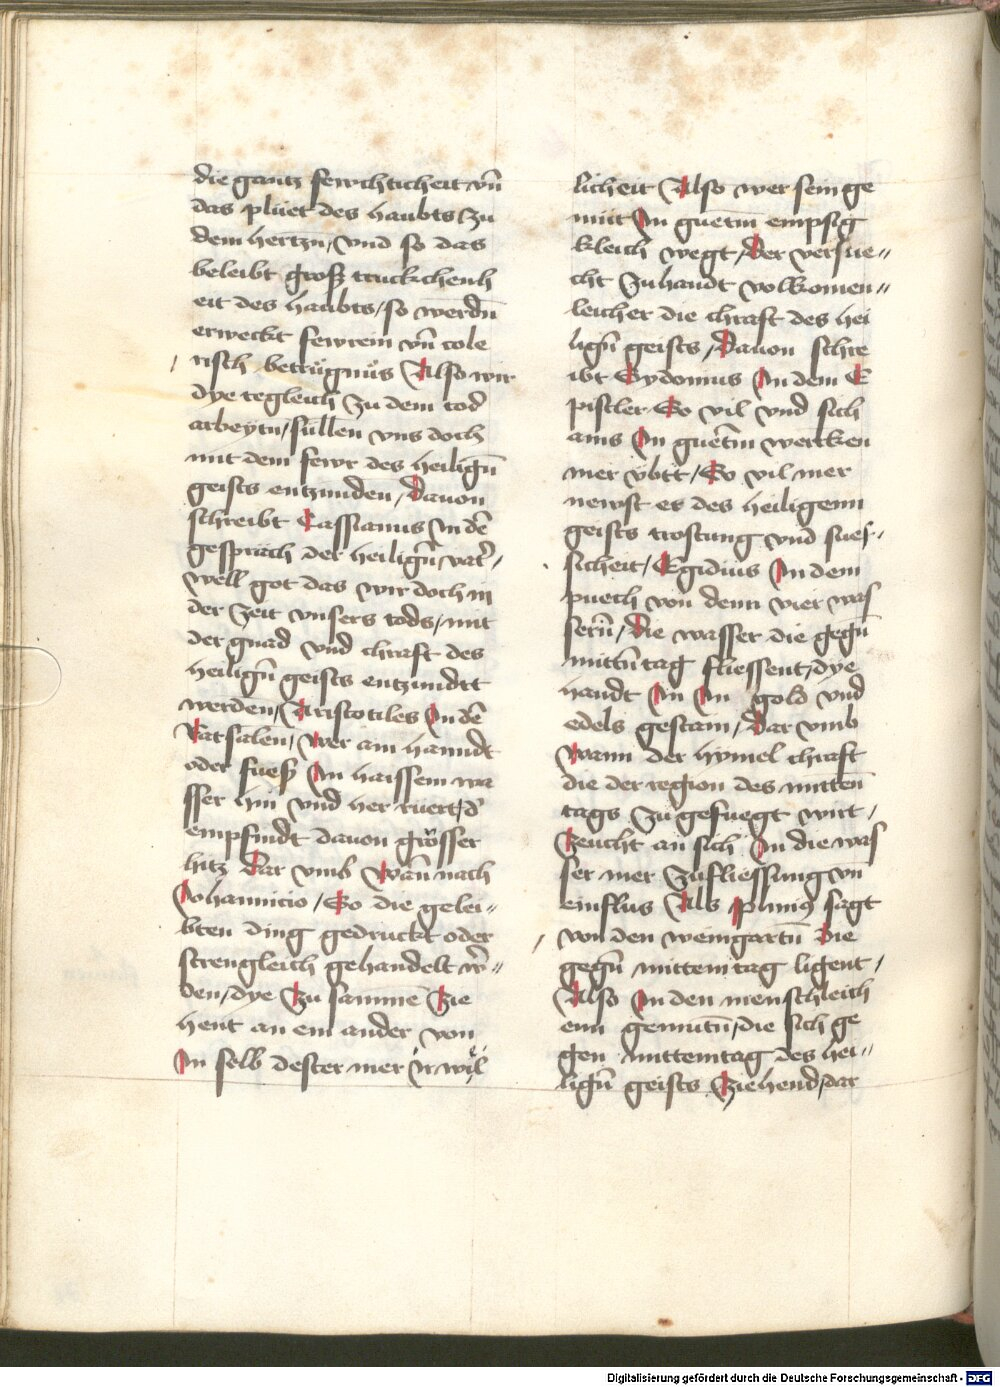 die gantz fewchticheit vn̄
das plůet des haubts zu
dem hertzn̄ / vnd so das
beleibt groß truckchenh
eit des haubts / so werdn̄
erweckt fewrein vn̄ cole
risch betrůgnůs Also wir
dye tegleich zu dem tod
arbeytn̄ / sullen vns doch
mit dem fewr des heilign̄
geists entzunden / Dauon
schreibt Cassianus In dē
gespräch der heilign̄ vat̄
well got das wir doch in
der zeit vnsers tods / mit
der gnad vnd chraft des
heilign̄ geists entzundtt
werden / Aristotiles In dē
Ratsalen / wer ain hanndt
oder fueß In haissem wa
sser hin vnd her ruert / d̓
empfindt dauon grösser
hitz Dar vmb Wān nach
Johannicio / So die gelei⸗
bten ding gedruckt oder
strengleich gehandelt w̄⸗
den / dye zu samme̅ zie
hent an ein ander von
In selb dester mer Ir wil
licheit Also wer sein ge
müt In guetm̄ empsig
kleich wegt / Der versue⸗
cht zuhandt volkomen⸗
leicher die chraft des hei
lign̄ geists / Dauon schre
ibt Sydonius In dem E
pistler So vil vnd sich
ains In guetm̄ wercken
mer vbtt / So vil mer
newst er des heiligenn
geists trostung vnd sues⸗
sicheit / Egidius In dem
puech von denn vier was
sern̄ / Die wasser die gegn̄
mittn̄tag fliessent / dye
handt In In gold vnd
edels gestain / Dar vmb
wann der hymel chraft
die der region des mitten̄
tags zu gefuegt wirt /
Zeucht an sich In die was
ser mer zufliessung vn̄
einflus Als plinius sagt
von den weingartn̄ Die
gegn̄ mittemtag ligent /
Also In den menschleich
enn gemutn̄ / die sich ge
gen mittemtag des hei⸗
lign̄ geists ziehend / dar
Digitalisierung gefördert durch die Deutsche Forschungsgemeinschaft - DFG